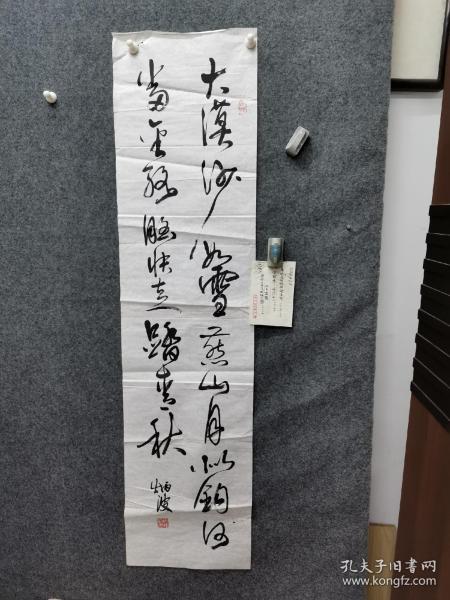 大漠沙如雪燕山月似鈎何
當金絡腦快走踏清秋
炳波
孔夫子旧书网
www.kongfz.com